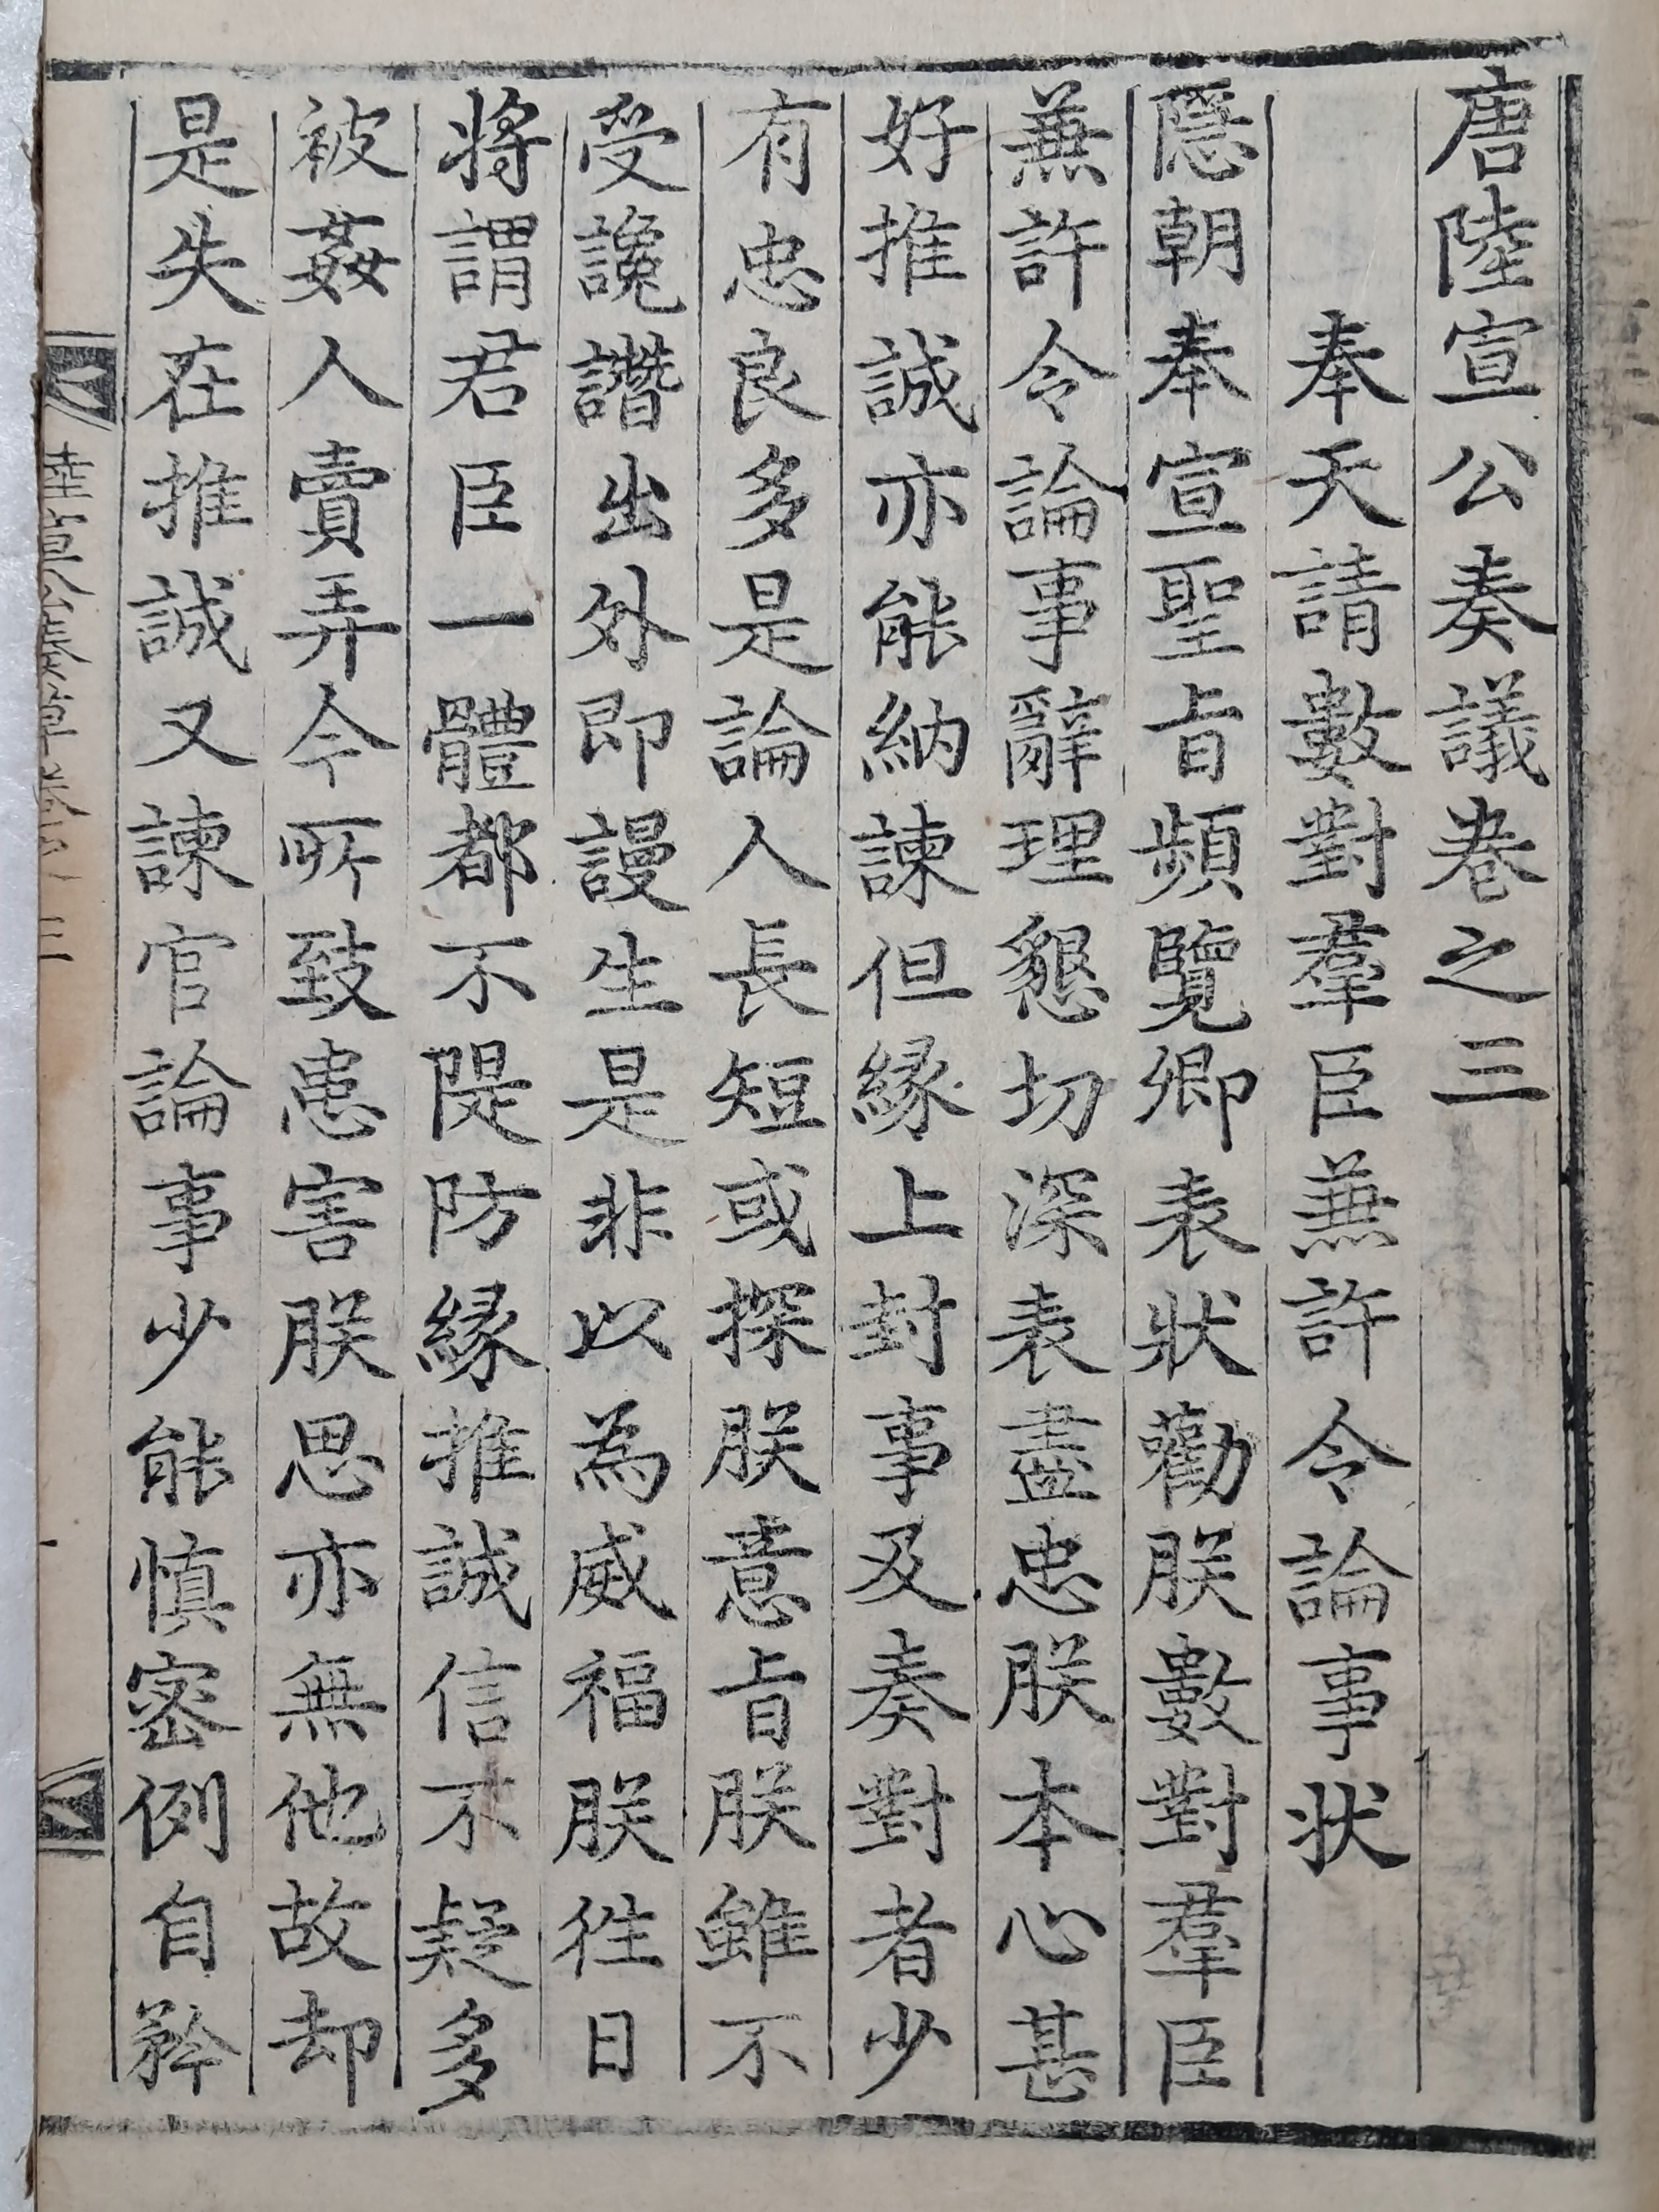 唐陸宣公奏議卷之三
奉天請數對羣臣兼許令論事狀
隱朝奉宣聖旨頻覽卿表狀勸朕數對羣臣
兼許令論事辭理懇切深表盡忠朕本心甚
好推誠亦能納諫但緣上封事及奏對者少
有忠良多是論人長短或探朕意旨朕雖不
受讒譖出外即謾生是非以為威福朕往日
將謂君臣一體都不隄防緣推誠信不疑多
被姦人賣弄今所致患害朕思亦無他故却
是失在推誠又諫官論事少能慎密例自矜